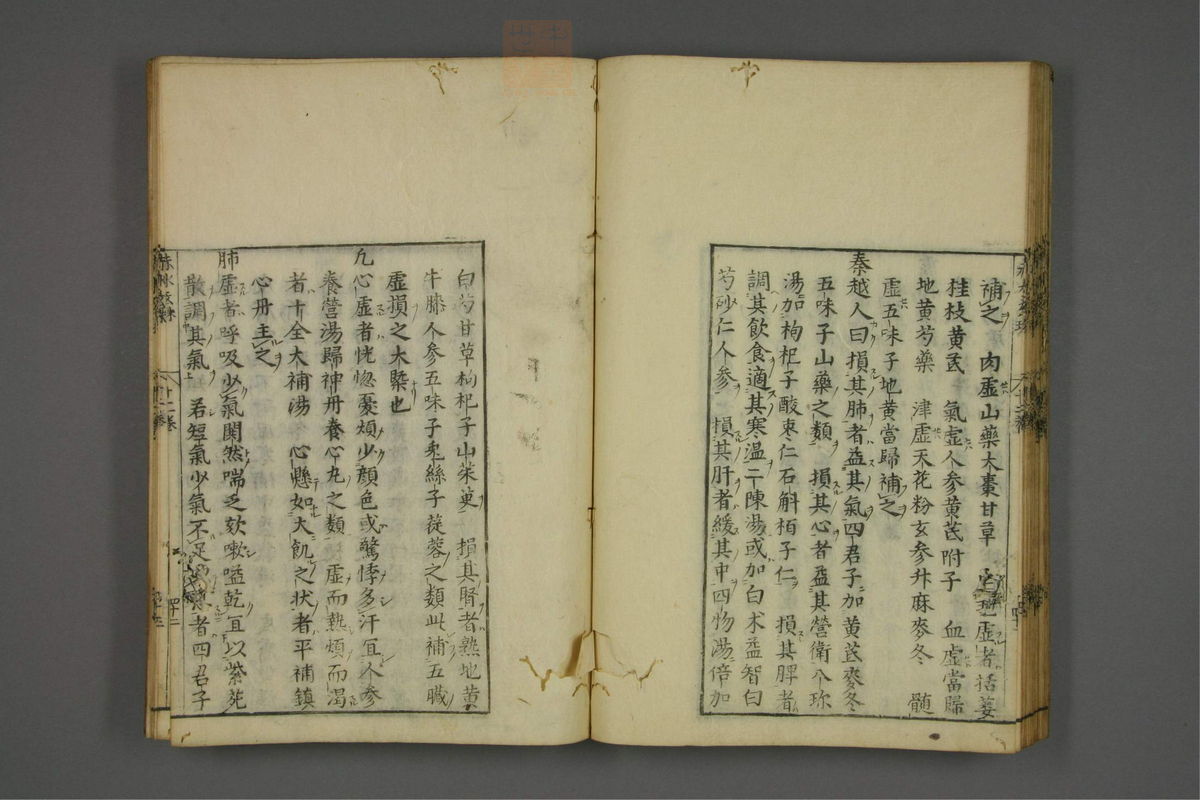 補之　肉虛山藥大棗甘草　虛者括蔞
桂枝黃芪　氣虛人參黃芪附子　血虛當歸
地黃芍藥　津虛天花粉玄參升麻麥冬　髓
虛五味子地黃當歸補之
秦越人曰損其肺者益其氣四君子加黃芪麥冬
五味子山藥之類　損其心者益其營衛八珍
湯加枸杞子酸棗仁石斛栢子仁　損其脾者
調其飲食適其寒溫二陳湯或加白术益智白
芍砂仁人參　損其肝者緩其中四物湯倍加
白芍甘草枸杞子山茱萸　損其腎者熟地黃
牛膝人參五味子兎絲子蓯蓉之類此補五臟
虛損之大槩也
凡心虛者恍惚憂煩少顏色或驚悸多汗宜人參
養營湯歸神丹養心丸之類　虛而熱煩而渴
者十全大補湯　心懸如大飢之狀者平補鎮
心丹主之
肺虛者呼吸少氣関然喘乏欬嗽嗌乾宜以紫菀
散調其氣　若短氣少氣不足者四君子